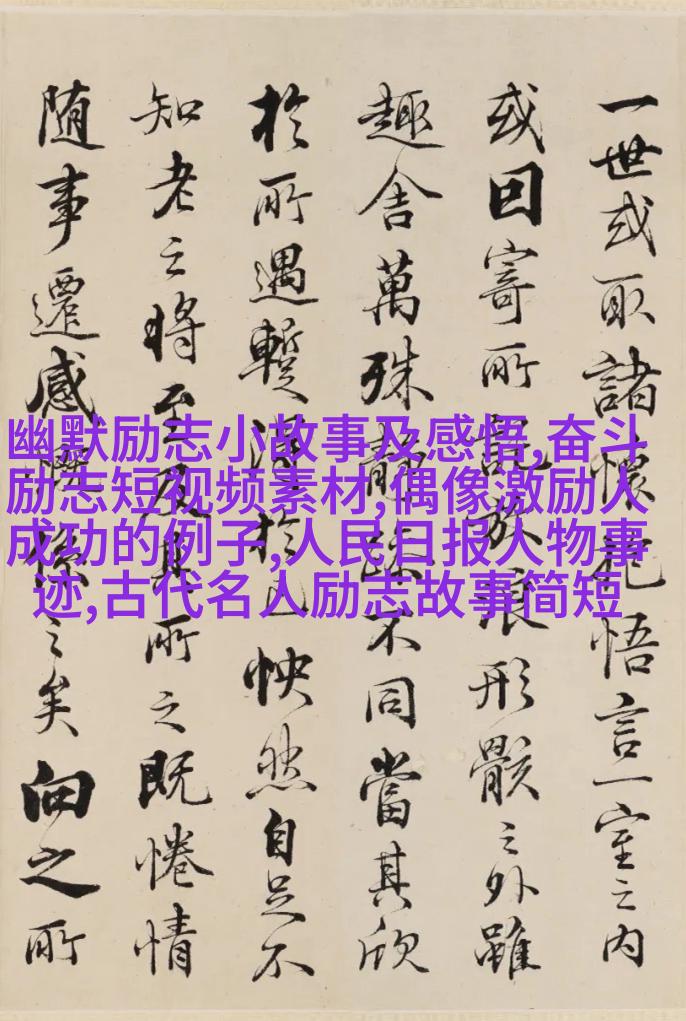 一世或取諸懷抱悟言一室之內
或因寄所託放浪形骸之外雖
趣舍萬殊靜躁不同當其欣
於所遇蹔得於己怏然自足不
知老之將至及其所之既惓情
隨事遷感慨係之矣向之所
幽默励志小故事及感悟,奋斗
励志短视频素材,偶像激励人
成功的例子,人民日报人物事
迹,古代名人励志故事简短